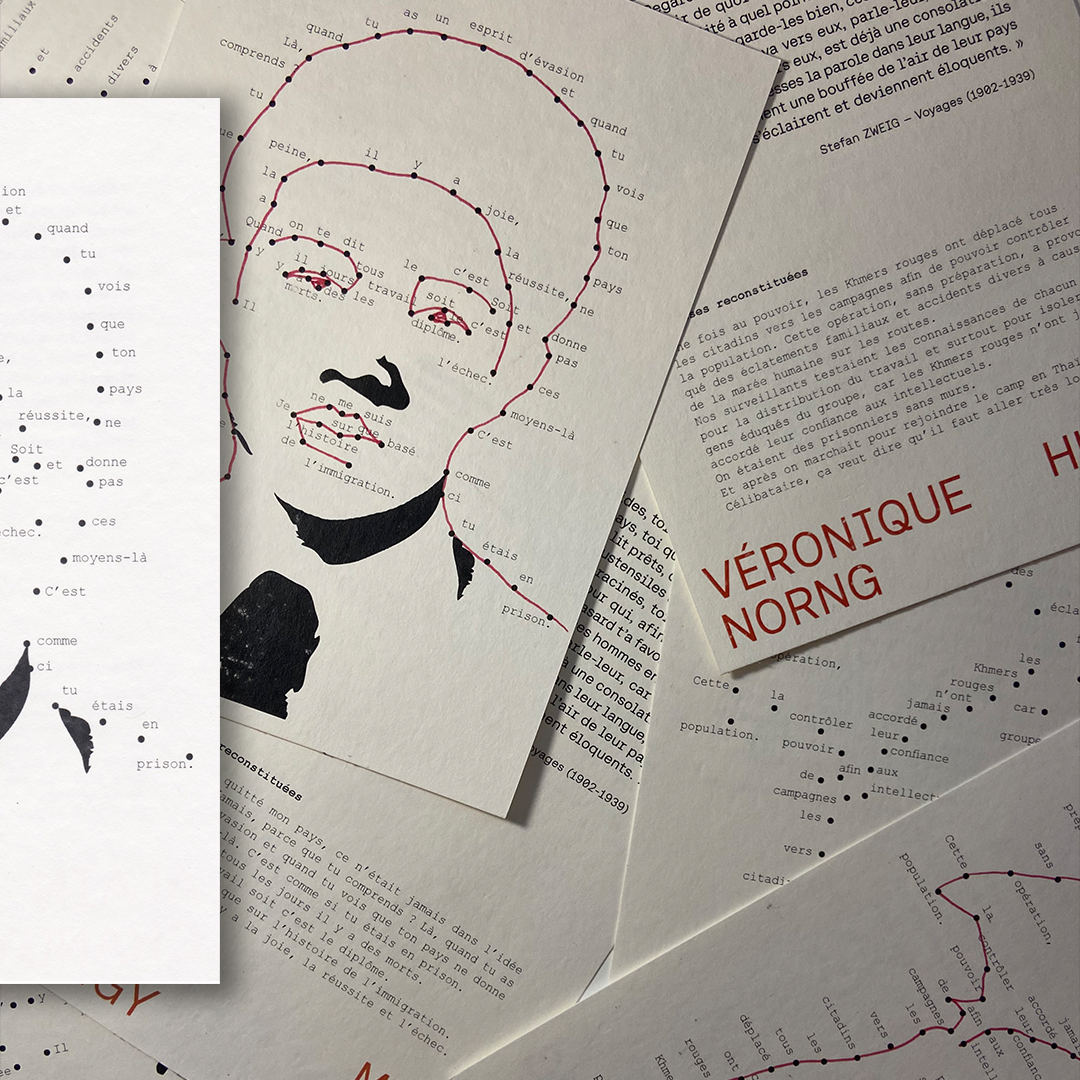 et
accidents
divers
a
ion
et
quand
tu
vois
que
ton
la
pays
réussite,
ne
Soit
et
donne
c'est
pas
ces
moyens-là
C'est
comme
ci
tu
étais
en
prison.
comprends ?
Là,
quand
tu
as
un
esprit
d'évasion
et
quand
tu
vois
que
ton
pays
ne
donne
pas
ces
moyens-là
C'est
comme
ci
tu
étais
en
prison.
tu
peine,
il
y
a
joie,
la
réussite,
et
l'échec.
la
a
y
Il
Quand
on
te
dit
tous
les
jours
il
y
a
des
morts.
le
travail
c'est
Soit
soit
c'est
le
diplôme.
Je
ne
me
suis
basé
que
sur
l'histoire
de
l'immigration.
garde-les bien,
Stefan ZWEIG – Voyages (1902-1939)
s'éclairent et deviennent éloquents. »
ent une bouffée de l'air de leur pays
sses la parole dans leur langue, ils
s eux, est déjà une consolati
va vers eux, parle-leur,
reconstituées
e fois au pouvoir, les Khmers rouges ont déplacé tous
les citadins vers les campagnes afin de pouvoir contrôler
la population. Cette opération, sans préparation, a provo
qué des éclatements familiaux et accidents divers à caus
de la marée humaine sur les routes.
Nos surveillants testaient les connaissances de chacun
pour la distribution du travail et surtout pour isoler
gens éduqués du groupe, car les Khmers rouges n'ont j
accordé leur confiance aux intellectuels.
On étaient des prisonniers sans murs.
Et après on marchait pour rejoindre le camp en Thaï
Célibataire, ça veut dire qu'il faut aller très lo
VÉRONIQUE
NORNG
H
des, to
ays, toi qu
lit prêts,
ustensiles
racinés, to
ur qui, afin
asard t'a favo
es hommes en
rle-leur, car
à une consolat
ns leur langue,
l'air de leur pa
ent éloquents.
oyages (1902-1939)
reconstituées
quitté mon pays, ce n'était jamais dans l'idée
amais, parce que tu comprends ? Là, quand tu as
vasion et quand tu vois que ton pays ne donne
-là. C'est comme si tu étais en prison.
tous les jours il y a des morts.
vail soit c'est le diplôme.
que sur l'histoire de l'immigration.
y a la joie, la réussite et l'échec.
GY
y
Il
opération,
Cette
la
population.
contrôler
pouvoir
de
afin
campagnes
les
vers
citadi
aux
intellect
confiance
leur
accordé
jamais
n'ont
rouges
Khmers
les
car
groupe
des
écla
Cette
sans
opération,
population.
la
contrôler
pouvoir
de
afin
campagnes
les
vers
citadins
les
tous
déplacé
ont
rouges
Khme
aux
intell
confiance
leur
accordé
jama